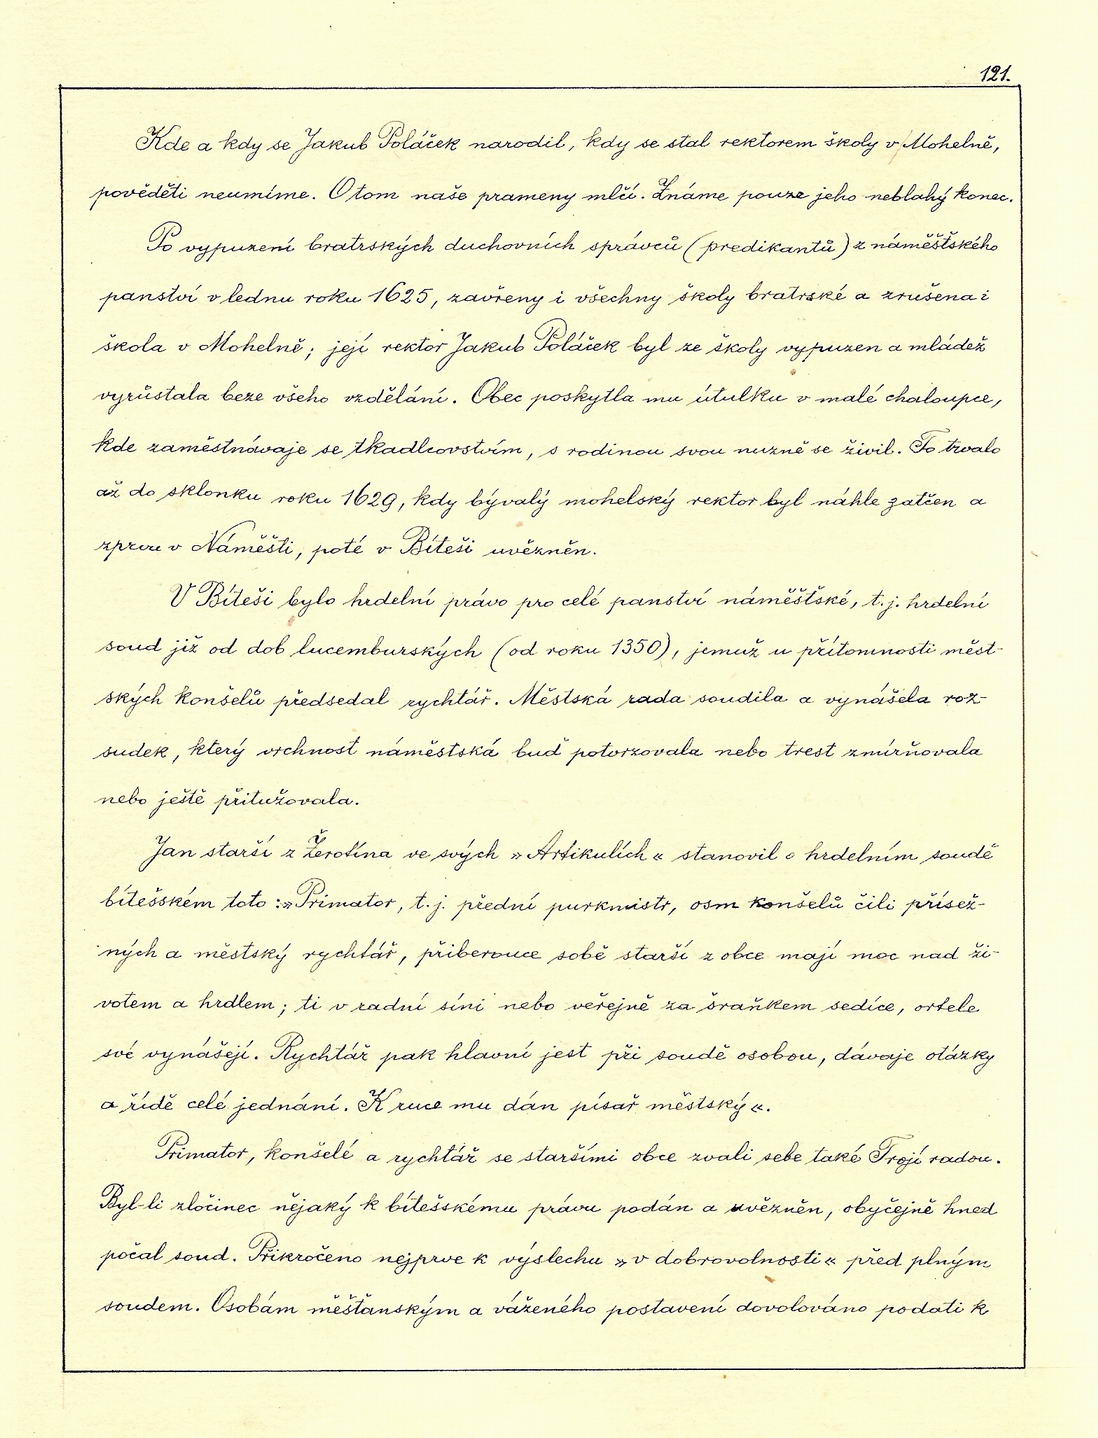 121.
Kde a kdy se Jakub Poláček narodil, kdy se stal rektorem školy v Mohelně,
pověděti neumíme. O tom naše prameny mlčí. Známe pouze jeho neblahý konec.
Po vypuzení bratrských duchovních správců (predikantů) z náměšťského
panství v lednu roku 1625, zavřeny i všechny školy bratrské a zrušena i
škola v Mohelně; její rektor Jakub Poláček byl ze školy vypuzen a mládež
vyrůstala beze všeho vzdělání. Obec poskytla mu útulku v malé chaloupce,
kde zaměstnávaje se tkadlcovstvím, s rodinou svou nuzně se živil. To trvalo
až do sklonku roku 1629, kdy bývalý mohelský rektor byl náhle zatčen a
zprvu v Náměšti, poté v Bíteši uvězněn.
V Bíteši bylo hrdelní právo pro celé panství náměšťské, t.j. hrdelní
soud již od dob lucemburských (od roku 1350), jemuž u přítomnosti měst-
ských konšelů předsedal rychtář. Městská rada soudila a vynášela roz-
sudek, který vrchnost náměstská buď potvrzovala nebo trest zmírňovala
nebo ještě přitužovala.
Jan starší z Žerotína ve svých »Artikulích« stanovil o hrdelním soudě
bítešském toto: »Primator, t.j. přední purkmistr, osm konšelů čili přísež-
ných a městský rychtář, přiberouce sobě starší z obce mají moc nad ži-
votem a hrdlem; ti v radní síni nebo veřejně za šraňkem sedíce, ortele
své vynášejí. Rychtář pak hlavní jest při soudě osobou, dávaje otázky
a řídě celé jednání. K ruce mu dán písař městský«.
Primator, konšelé a rychtář se staršími obce zvali sebe také Trojí radou.
Byl-li zločinec nějaký k bítešskému právu podán a uvězněn, obyčejně hned
počal soud. Přikročeno nejprve k výslechu »v dobrovolnosti« před plným
soudem. Osobám měšťanským a váženého postavení dovolováno podati k